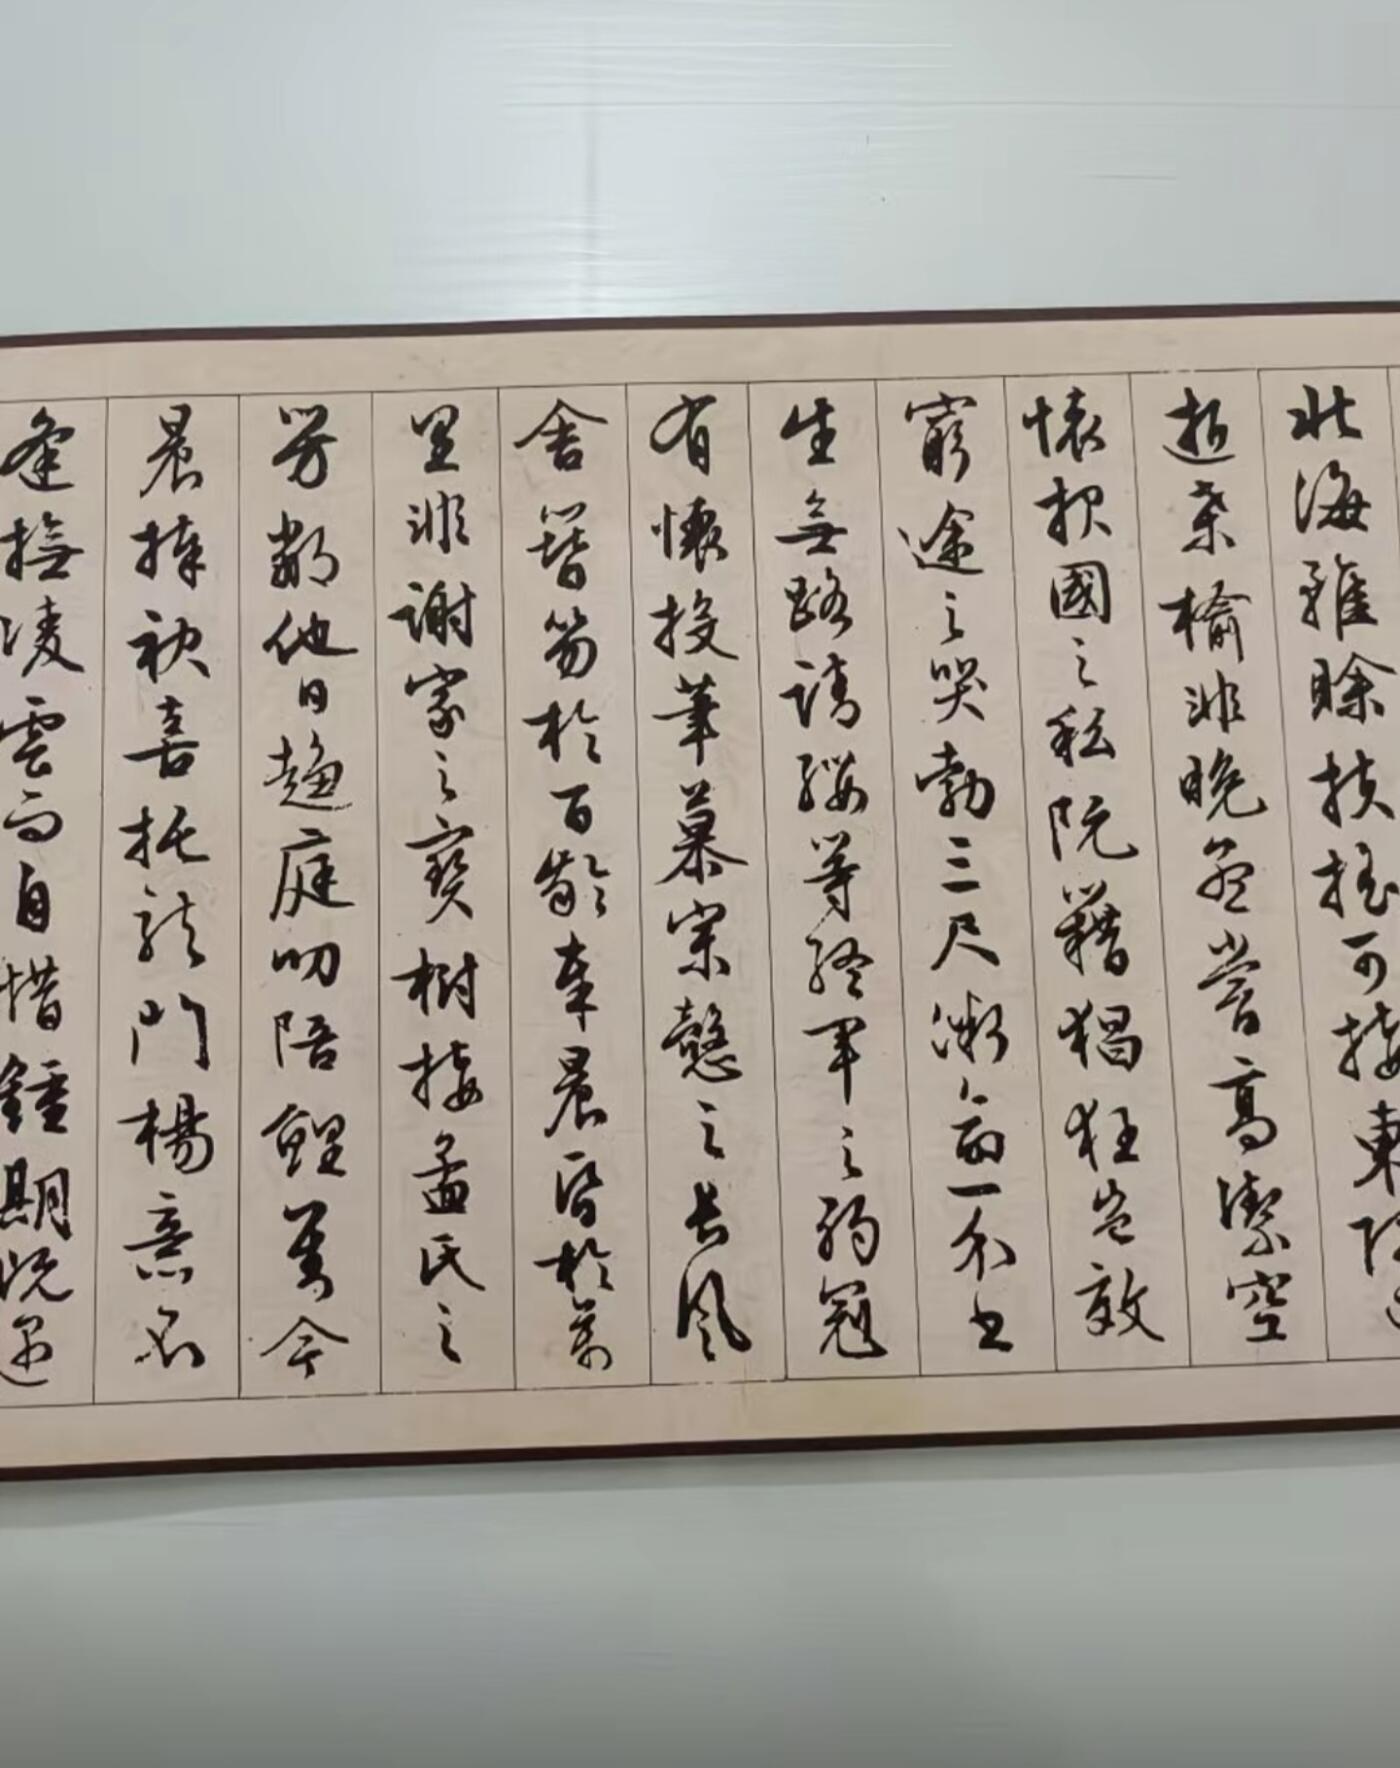 北海雖賒扶搖可接東隅已
逝桑榆非晚孟嘗高潔空
懷報國之私阮籍猖狂豈效
窮途之哭勃三尺微命一介書
生無路請纓等終軍之弱冠
有懷投筆慕宗愨之長風
舍簪笏於百齡奉晨昏於萬
里非謝家之寶樹接孟氏之
芳鄰他日趨庭叨陪鯉對今
晨捧袂喜托龍門楊意不
逢撫凌雲而自惜鍾期既遇